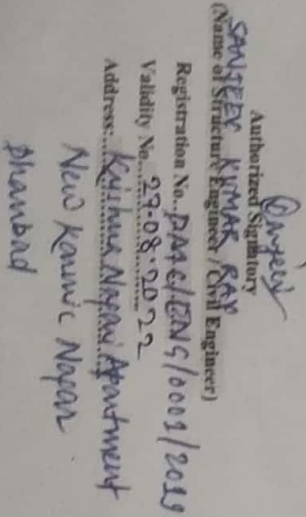 Sanjeev
Authorized Signatory
SANJEEV KUMAR RAY
(Name of Structure Engineer / Civil Engineer)
Registration No..DMC/ENG/0001/2019
Validity No...27-08-2022
Address:..Krishna Nagari Apartment
New Karmic Nagar
Dhanbad